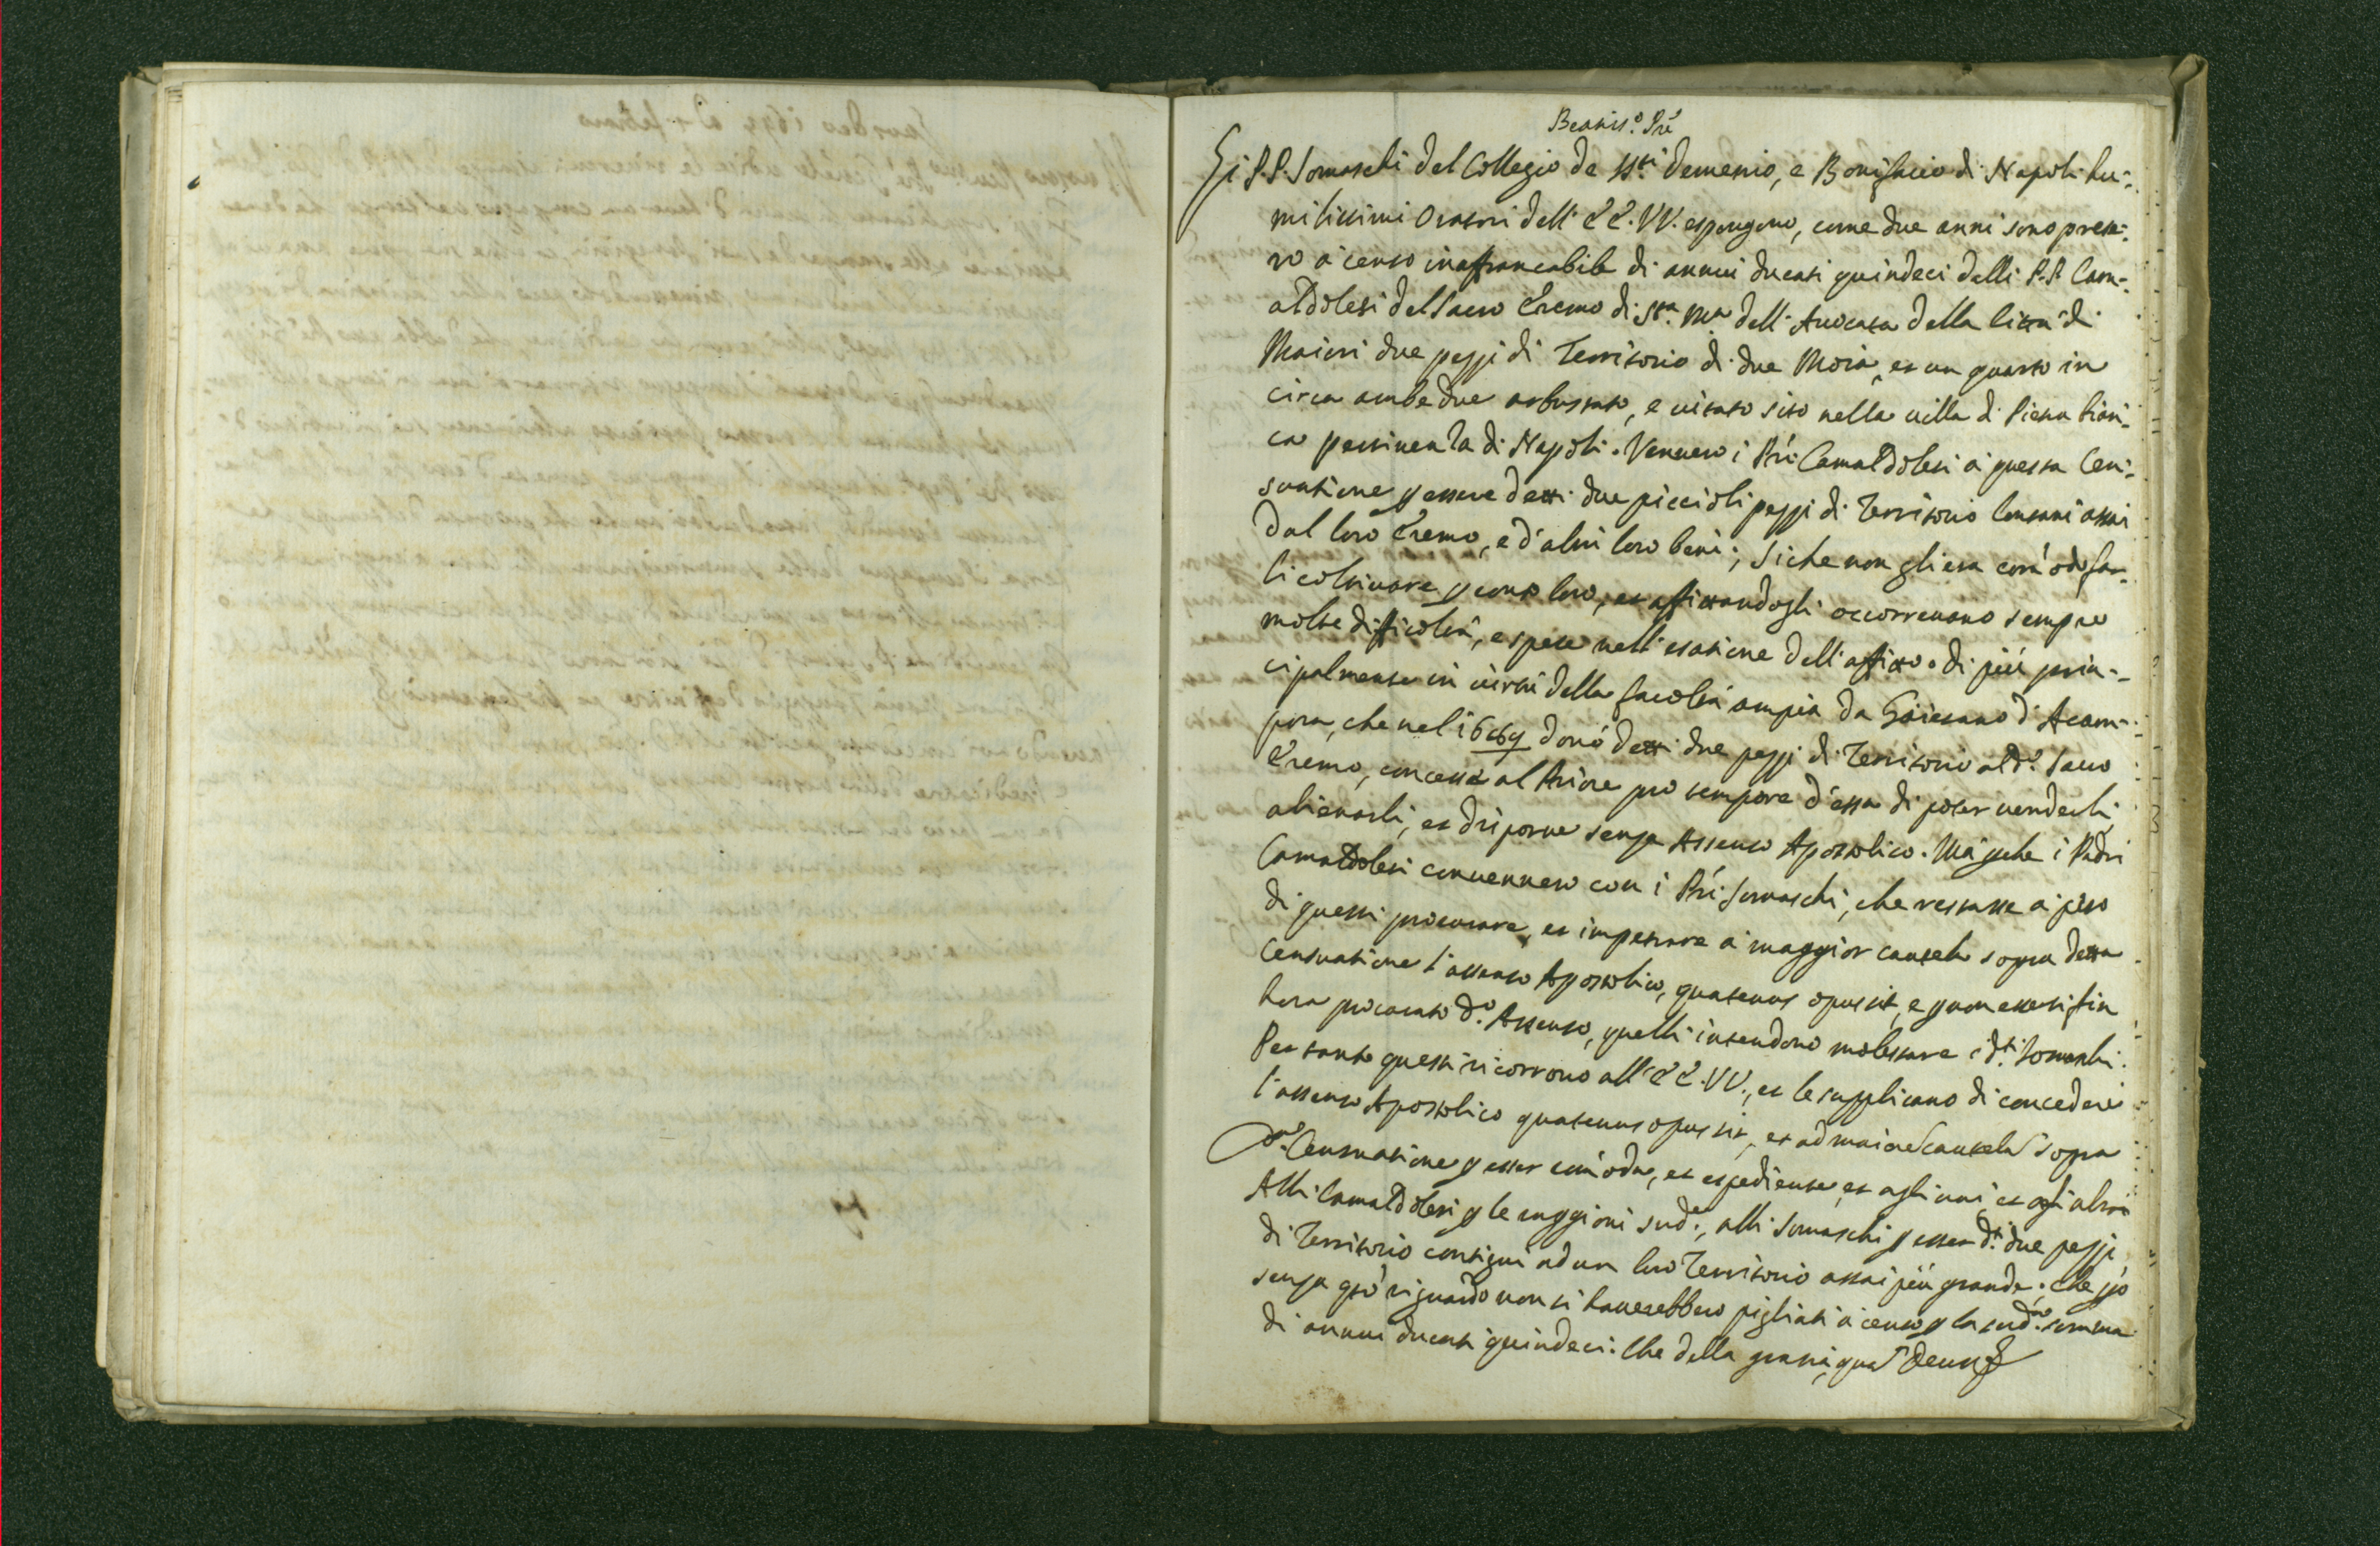 Beatis.º Prê
Gi P.P. Somaschi del Collegio de SS.ti Demenio, e Bonifacio di Napoli hu-
milissimi Oratori dell' EE. VV. espongono, come due anni sono prese-
ro à censo inaffrancabile di annui ducati quindeci dalli P.P. Cam-
aldolesi del Sacro Eremo di S.ta M.a dell' Avocata della Città di
Maiori due pezzi di Territorio di due Moia, et un quarto in
circa ambedue arbustato, e vitato sito nella villa di Pietra bian-
ca pertinenza di Napoli. Vennero i Pri Camaldolesi à questa Cen-
suatione p essere detti due piccioli pezzi di Territorio lontani assai
dal loro Eremo, e d'altri loro beni; siche non gli era comodo far-
li coltivare p conto loro, et affittandogli occorrevano sempre
molte difficoltà, e spese nell' esatione dell' affitto. di più prin-
cipalmente in virtù della facoltà ampia da Gaietano d' Acam-
pora, che nel 1669 donò detti due pezzi di Territorio al d.º Sacro
Eremo, concessa al Priore pro tempore d'esso di poter venderli,
alienarli, et disporne senza Assenso Apostolico. Mà pche i Padri
Camaldolesi convennero con i Pri Somaschi, che restasse à peso
di questi procurare, et impetrare à maggior cautela sopra detta
Censuatione l'assenso Apostolico, quatenus opus sit, e p non essersi fin
hora procurato d.º Assenso, quelli intendono molestare i d.ti Somaschi.
Per tanto questi ricorrono all' EE. VV., et le supplicano di concedere
l'assenso Apostolico quatenus opus sit, et ad maiore cautela sopra
d.a Censuatione p esser comoda, et espediente, et agli uni, et agli altri
Alli Camaldolesi p le raggioni sud.e, alli Somaschi p esser d.ti due pezzi
di Territorio contigui ad un loro Territorio assai più grande; che p
senza qto riguardo non si haverebbero pigliati à censo p la sud.a somma
di annui ducati quindeci. Che della gratia, qua Deus &